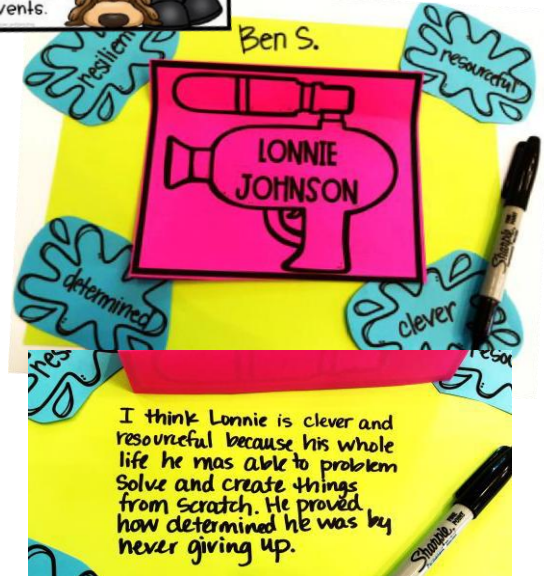 vents.
resilient
Ben S.
resourceful
LONNIE
JOHNSON
Sharpie
determined
clever
res
resou
I think Lonnie is clever and
resourceful because his whole
life he mas able to problem
Solve and create things
from scratch. He proved
how determined he was by
never giving up.
Sharpie
FINE POINT